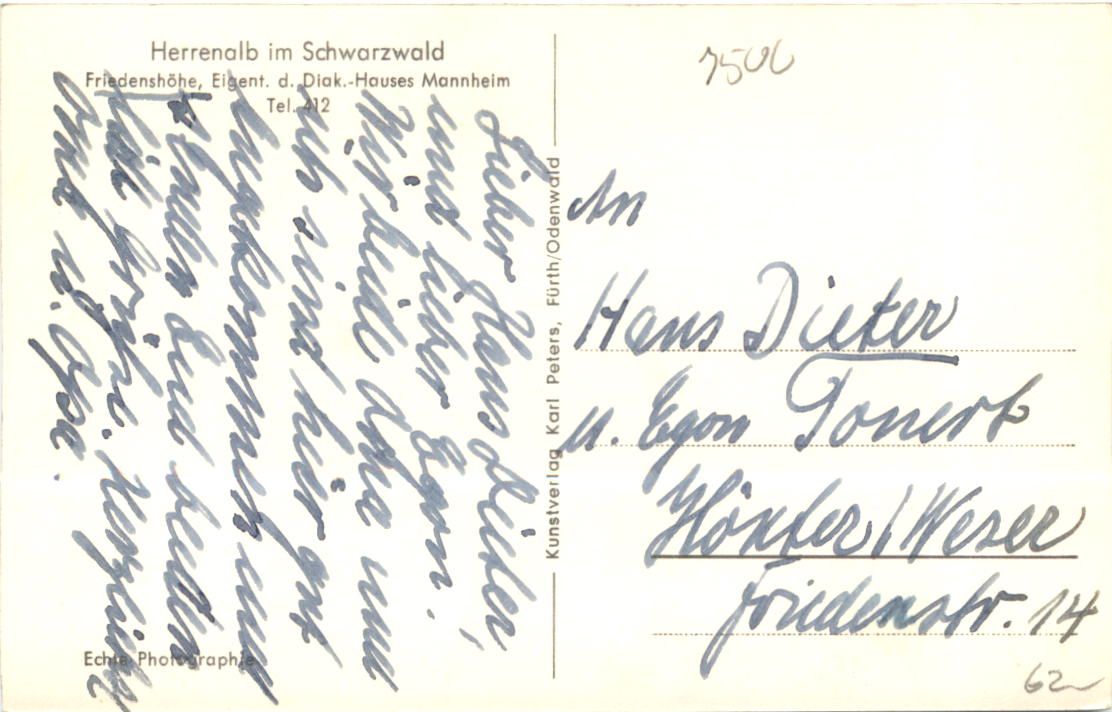 Herrenalb im Schwarzwald
Friedenshöhe, Eigent. d. Diak.-Hauses Mannheim
Tel. 412
Lieber Hans Dieter,
und lieber Egon!
Wir beide Opa und
ich sind hier gut
angekommen und
senden Euch beiden
Grüße. Herzlichst
Oma u. Opa.
Echte Photographie
Kunstverlag Karl Peters, Fürth/Odenwald
7506
An
Hans Dieter
u. Egon Ponert
Höxter/Weser
Friedenstr. 14
62